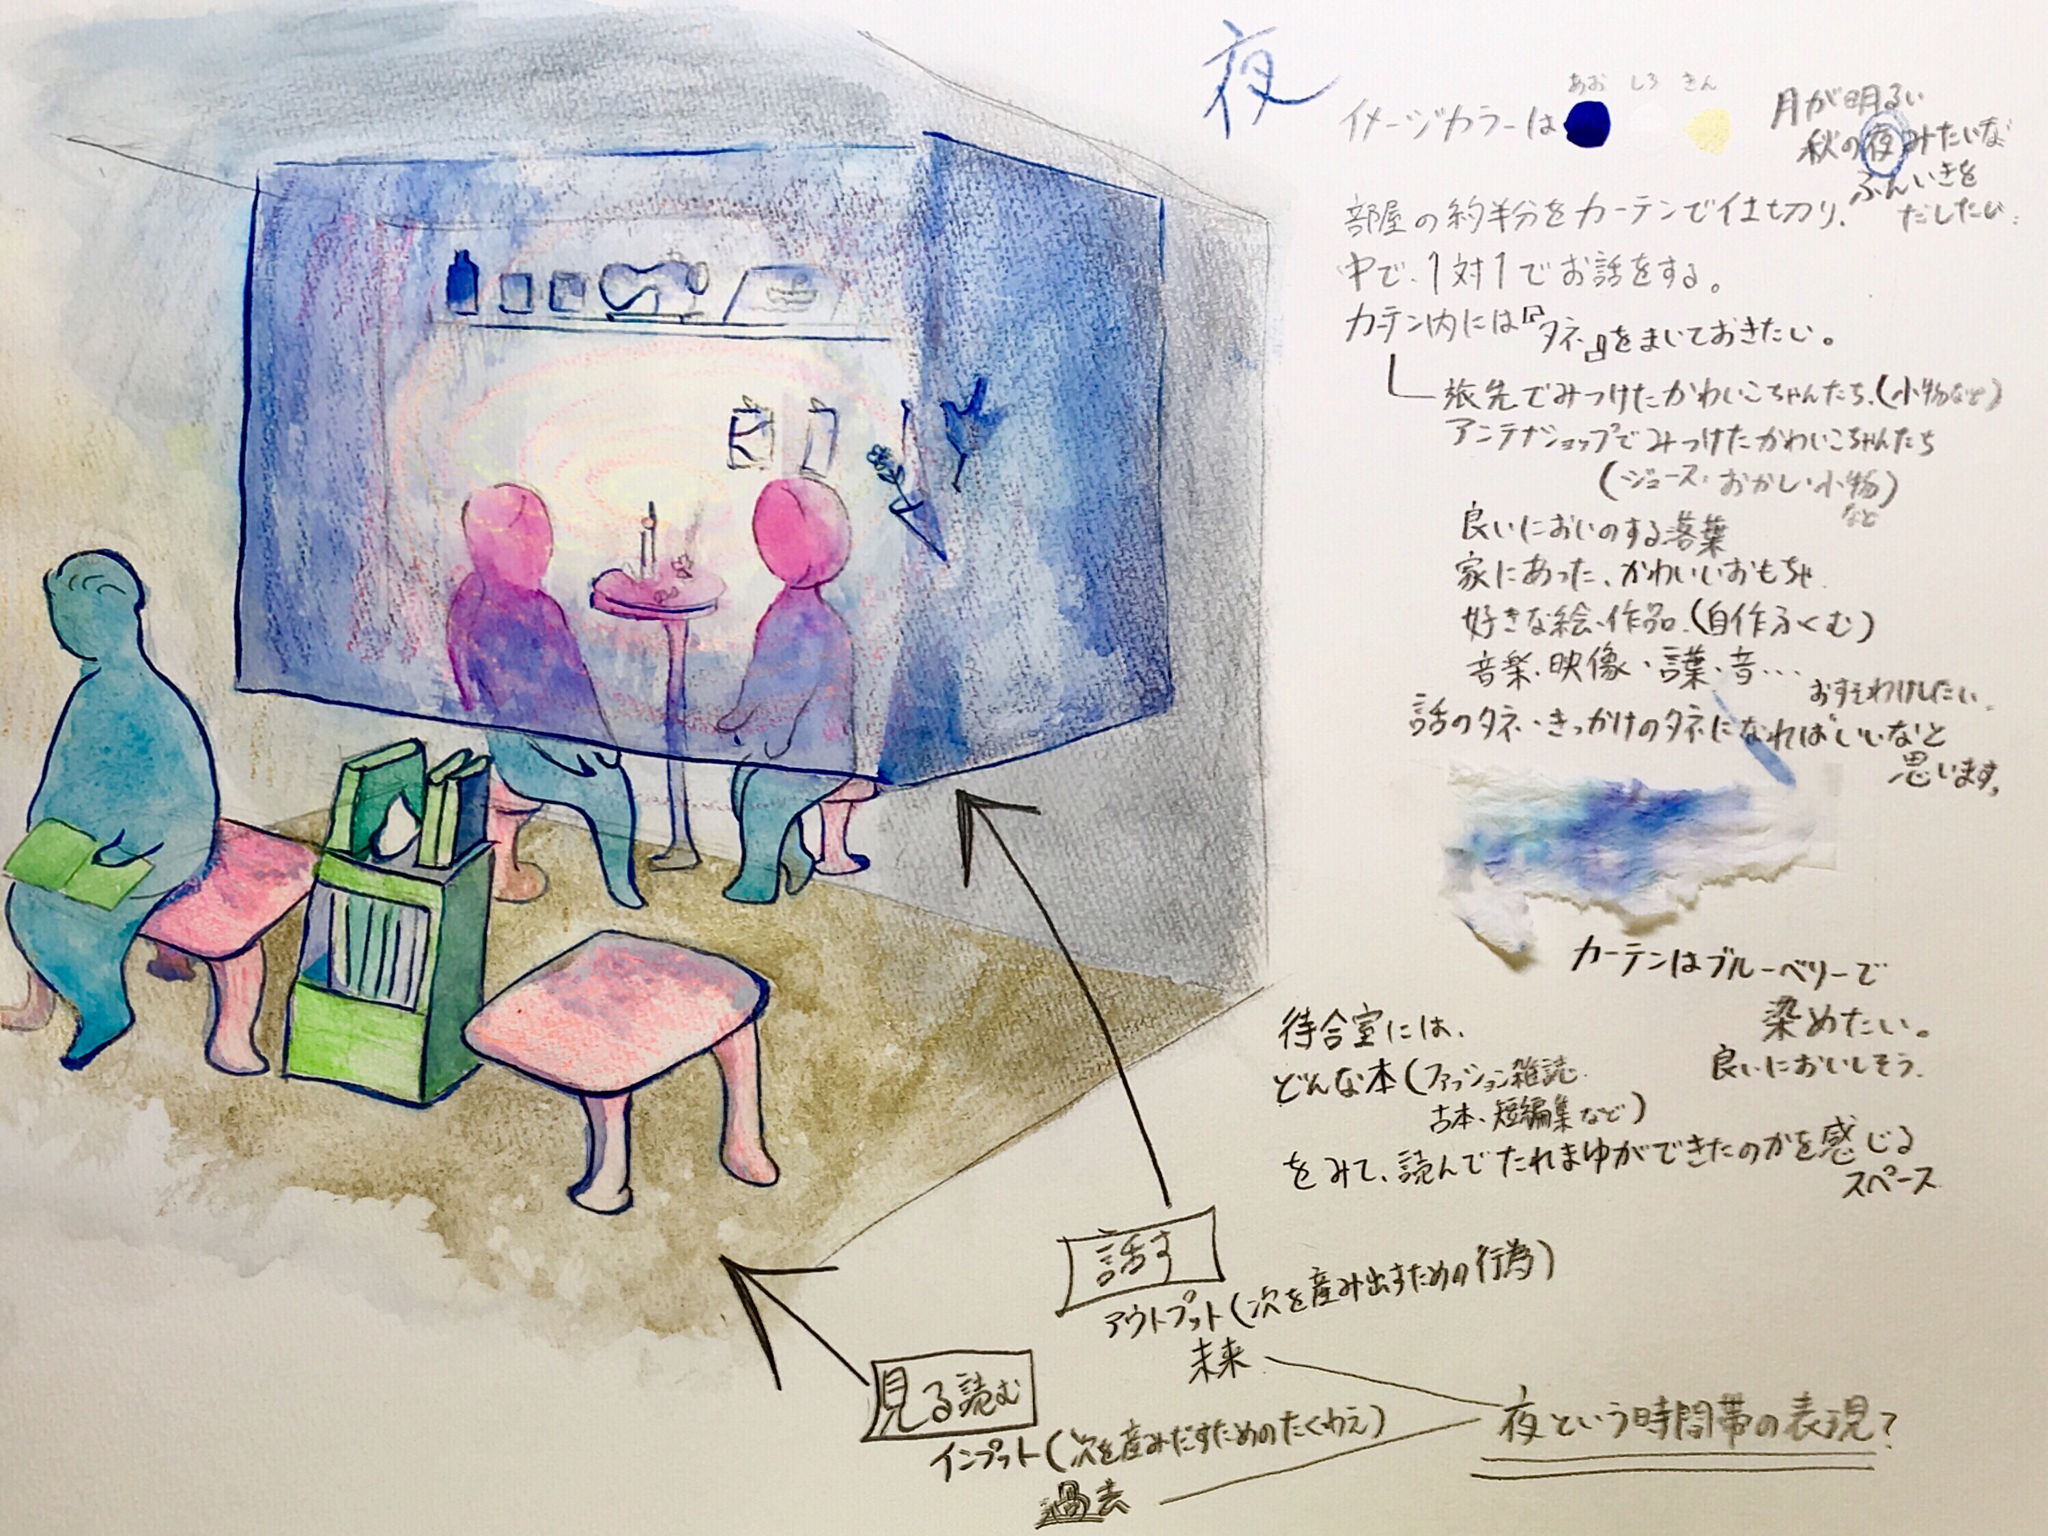 夜
イメージカラーは
あお しろ きん
月が明るい
秋の夜みたいな
ふんいきを
だしたい.
部屋の約半分をカーテンで仕切り、
中で、1対1でお話をする。
カーテン内には『タネ』をまいておきたい。
旅先でみつけたかわいこちゃんたち、(小物など)
アンテナショップでみつけたかわいこちゃんたち
(ジュース・おかし・小物)
など
良いにおいのする落葉
家にあった、かわいいおもちゃ
好きな絵・作品、(自作ふくむ)
音楽、映像・言葉・音…
おすそわけしたい。
話のタネ・きっかけのタネになればいいなと
思います。
カーテンはブルーベリーで
染めたい。
良いにおいしそう。
待合室には、
どんな本(ファッション雑誌、
古本、短編集など)
をみて、読んでたれまゆができたのかを感じる
スペース
話す
アウトプット(次を産み出すための行為)
未来
見る読む
インプット(次を産みだすためのたくわえ)
過去
夜という時間帯の表現?